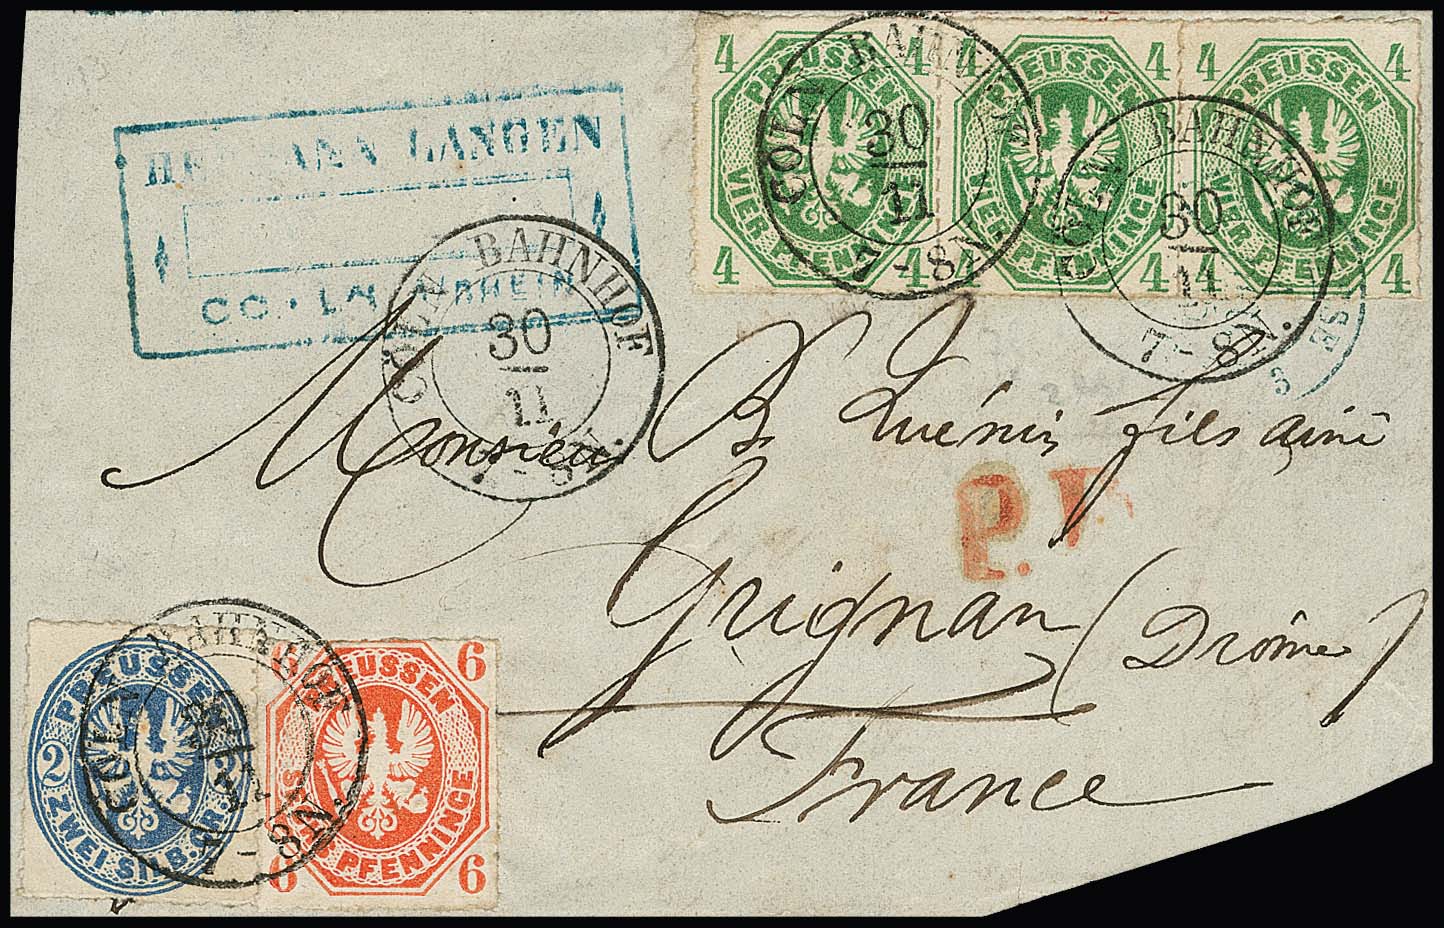 4 4 4 4 4
PREUSSEN PREUSSEN PREUSSEN
VIER PFENNINGE VIER PFENNINGE VIER PFENNINGE
4 4 4 4 4
CÖLN BAHNHOF
30
11
7-8N.
CÖLN BAHNHOF
30
11
7-8N.
HERMANN LANGEN
CÖLN A. RHEIN
CÖLN BAHNHOF
30
11
7-8N.
Monsieur B Luénin fils ainé
P.F.
Grignan (Drôme)
France
PREUSSEN
2 2
ZWEI SILB. GR.
6 6
PREUSSEN
SECHS PFENNINGE
6 6
CÖLN BAHNHOF
30
11
7-8N.